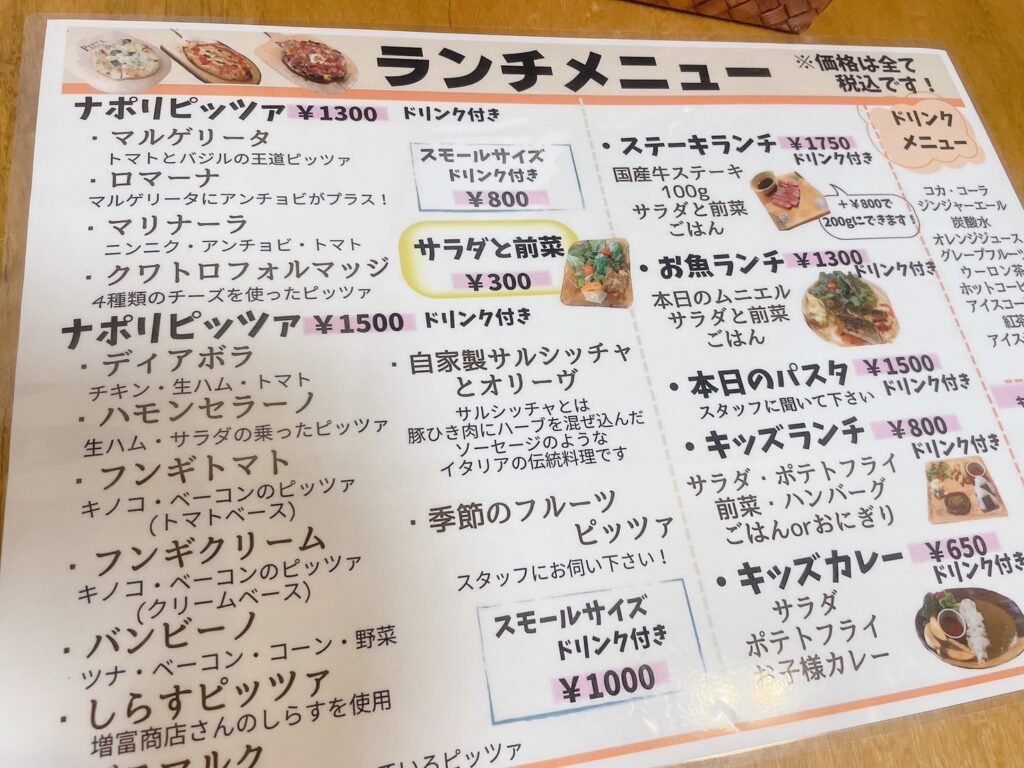 ランチメニュー
※価格は全て
税込です！
ナポリピッツァ ￥1300 ドリンク付き
・マルゲリータ
トマトとバジルの王道ピッツァ
・ロマーナ
マルゲリータにアンチョビがプラス！
・マリナーラ
ニンニク・アンチョビ・トマト
・クワトロフォルマッジ
4種類のチーズを使ったピッツァ
スモールサイズ
ドリンク付き
￥800
サラダと前菜
￥300
ナポリピッツァ ￥1500 ドリンク付き
・ディアボラ
チキン・生ハム・トマト
・ハモンセラーノ
生ハム・サラダの乗ったピッツァ
・フンギトマト
キノコ・ベーコンのピッツァ
(トマトベース)
・フンギクリーム
キノコ・ベーコンのピッツァ
(クリームベース)
・バンビーノ
ツナ・ベーコン・コーン・野菜
・しらすピッツァ
増富商店さんのしらすを使用
・自家製サルシッチャ
とオリーヴ
サルシッチャとは
豚ひき肉にハーブを混ぜ込んだ
ソーセージのような
イタリアの伝統料理です
・季節のフルーツ
ピッツァ
スタッフにお伺い下さい！
スモールサイズ
ドリンク付き
￥1000
・ステーキランチ ￥1750
ドリンク付き
国産牛ステーキ
100g
サラダと前菜
ごはん
＋￥800で
200gにできます！
・お魚ランチ ￥1300
ドリンク付き
本日のムニエル
サラダと前菜
ごはん
・本日のパスタ ￥1500
ドリンク付き
スタッフに聞いて下さい
・キッズランチ ￥800
ドリンク付き
サラダ・ポテトフライ
前菜・ハンバーグ
ごはんorおにぎり
・キッズカレー ￥650
ドリンク付き
サラダ
ポテトフライ
お子様カレー
ドリンク
メニュー
コカ・コーラ
ジンジャーエール
炭酸水
オレンジジュース
グレープフルーツ
ウーロン茶
ホットコーヒ
アイスコー
紅茶
アイス